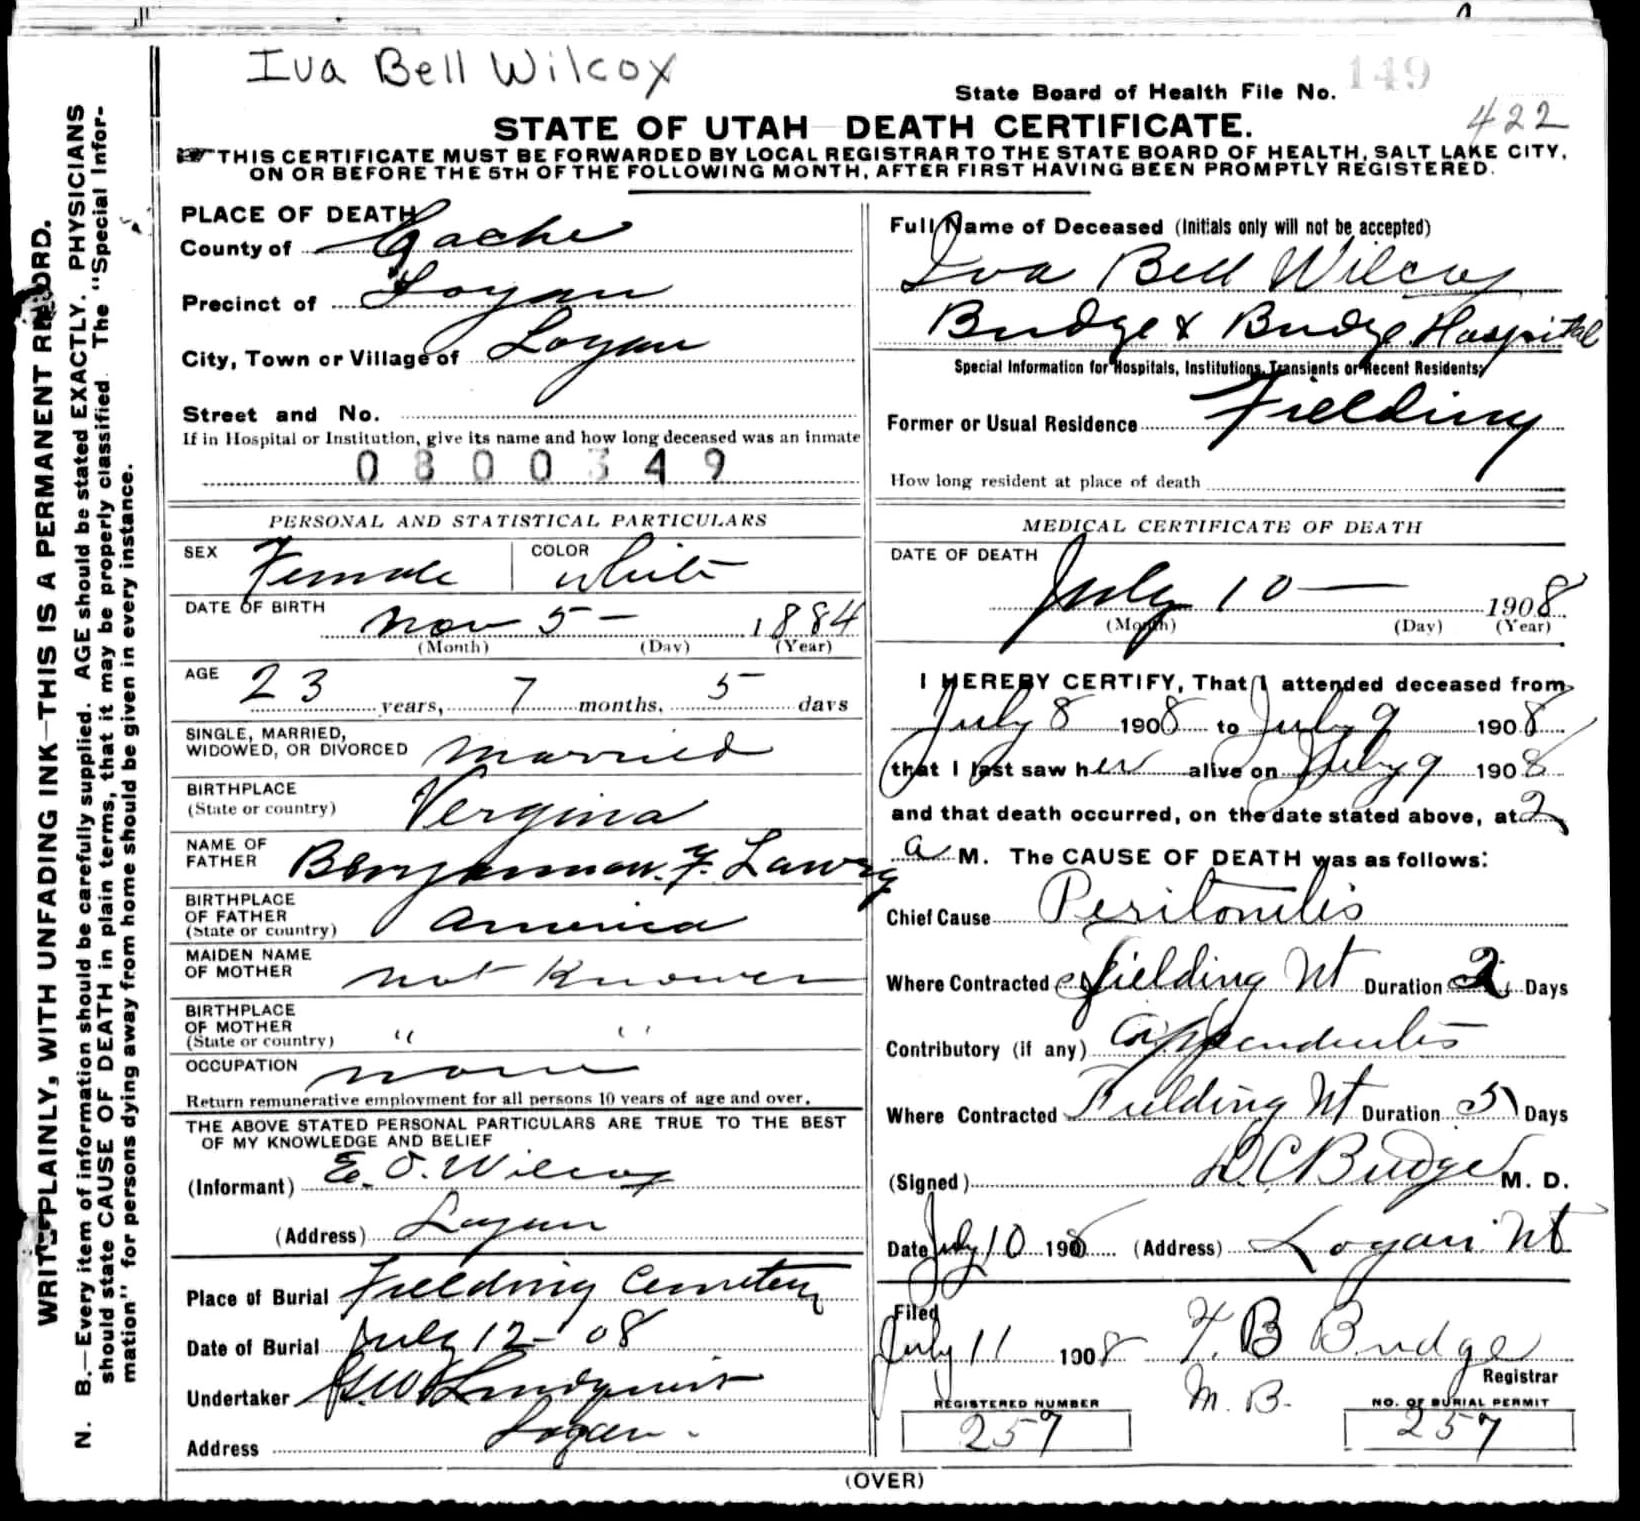 Iva Bell Wilcox
State Board of Health File No. 149
422
STATE OF UTAH DEATH CERTIFICATE.
THIS CERTIFICATE MUST BE FORWARDED BY LOCAL REGISTRAR TO THE STATE BOARD OF HEALTH, SALT LAKE CITY,
ON OR BEFORE THE 5TH OF THE FOLLOWING MONTH, AFTER FIRST HAVING BEEN PROMPTLY REGISTERED.
WRITE PLAINLY, WITH UNFADING INK—THIS IS A PERMANENT RECORD.
N. B.—Every item of information should be carefully supplied. AGE should be stated EXACTLY. PHYSICIANS
should state CAUSE OF DEATH in plain terms, that it may be properly classified. The "Special Infor-
mation" for persons dying away from home should be given in every instance.
PLACE OF DEATH
County of Cache
Precinct of Logan
City, Town or Village of Logan
Street and No.
If in Hospital or Institution, give its name and how long deceased was an inmate
0800349
PERSONAL AND STATISTICAL PARTICULARS
SEX Female COLOR White
DATE OF BIRTH Nov 5 — 1884
(Month) (Day) (Year)
AGE 23 years, 7 months, 5 days
SINGLE, MARRIED,
WIDOWED, OR DIVORCED married
BIRTHPLACE
(State or country) Vergina
NAME OF
FATHER F.
BIRTHPLACE
OF FATHER
(State or country) America
MAIDEN NAME
OF MOTHER not Known
BIRTHPLACE
OF MOTHER
(State or country) " "
OCCUPATION none
Return remunerative employment for all persons 10 years of age and over.
THE ABOVE STATED PERSONAL PARTICULARS ARE TRUE TO THE BEST
OF MY KNOWLEDGE AND BELIEF
(Informant) E. O. Wilcox
(Address) Logan
Place of Burial Fielding Cemetery
Date of Burial July 12 - 08
Undertaker Lindquist
Address Logan.
Full Name of Deceased (Initials only will not be accepted)
Iva Bell Wilcox
Budge & Budge Hospital
Special Information for Hospitals, Institutions, Transients or Recent Residents;
Former or Usual Residence Fielding
How long resident at place of death
MEDICAL CERTIFICATE OF DEATH
DATE OF DEATH
July 10 — 1908
(Month) (Day) (Year)
I HEREBY CERTIFY, That I attended deceased from
July 8 1908 to July 9 1908
that I last saw her alive on July 9 1908
and that death occurred, on the date stated above, at 2
a M. The CAUSE OF DEATH was as follows:
Chief Cause Peritonitis
Where Contracted Fielding Ut Duration 2 Days
Contributory (if any) Appendicitis
Where Contracted Fielding Ut Duration 5 Days
(Signed) D. C. Budge M. D.
Date July 10 1908 (Address) Logan Ut
Filed
July 11 1908 F. B Budge
Registrar
M. B.
REGISTERED NUMBER
257
NO. OF BURIAL PERMIT
257
(OVER)